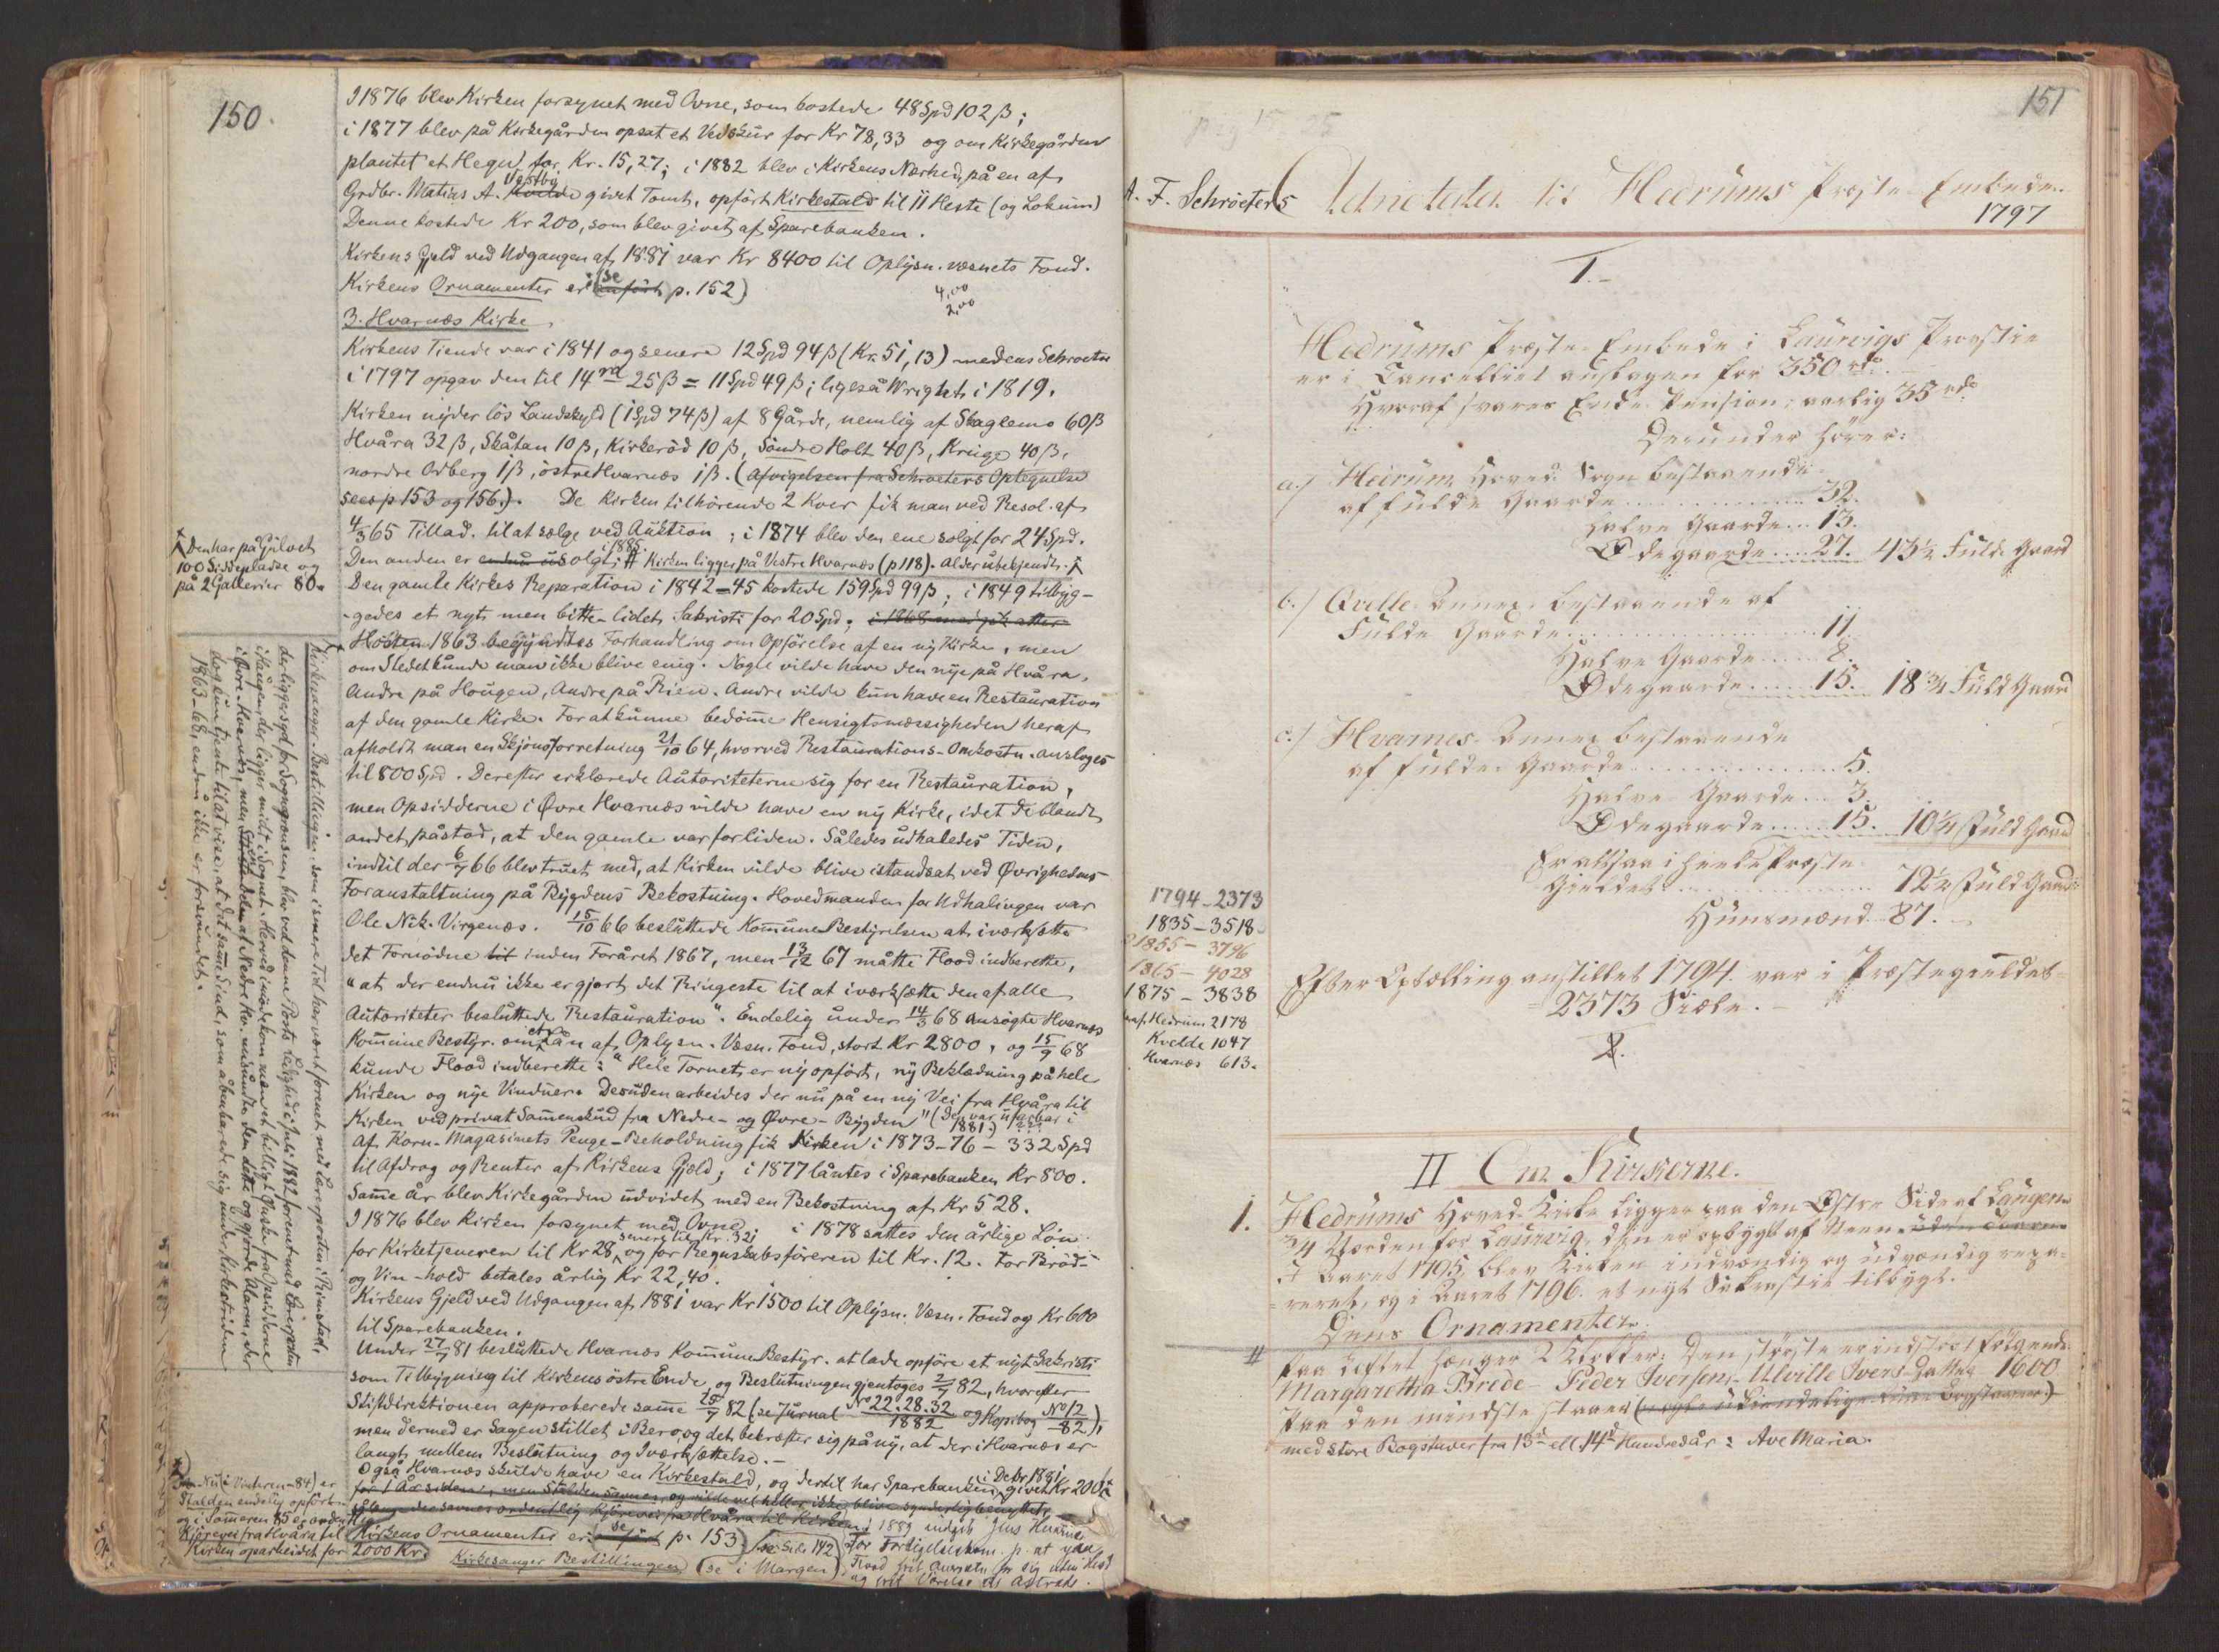 150.
I 1876 blev Kirken forsynet med Ovne, som kostede 48 Spd 102 β;
i 1877 blev på Kirkegården opsat et Vedskur for Kr 78,33 og om Kirkegården
plantet et Hegn for Kr. 15,27; i 1882 blev i Kirkens Nærhed, på en af
Grdbr. Matias A. Vestby givet Tomt, opført Kirkestald til 11 Heste (og Lokum)
Denne kostede Kr 200, som blev givet af Sparebanken.
Kirkens Gjeld ved Udgangen af 1881 var Kr 8400 til Oplysn. væsnets Fond.
Kirkens Ornamenter er (se anført p. 152)
4,00
2,00
3. Hvarnæs Kirke
Kirkens Tiende var i 1841 og senere 12 Spd 94 β (Kr. 51,13) medens Schroeter
i 1797 opgav den til 14 rd 25 β = 11 Spd 49 β; ligeså Wright i 1819.
Kirken nyder løs Landskyld (1 Spd 74 β) af 8 Gårde, nemlig af Skaglemo 60 β
Hvåra 32 β, Skåtan 10 β, Kirkerød 10 β, Søndre Holt 40 β, Kruge 40 β,
nordre Odberg 1 β, østre Hvarnæs 1 β. (Afvigelsen fra Schroeters Optegnelse
sees p 153 og 156). De Kirken tilhørende 2 Køer fik man ved Resol. af
4/3 65 Tillad. til at sælge ved Auktion; i 1874 blev den ene solgt for 24 Spd.
Den anden er endnu usolgt; i 1885 # Kirken ligger på Vestre Hvarnæs (p 118). Alder ubekjendt.
Den har på Gulvet
100 Siddepladse og
på 2 Gallerier 80.
Den gamle Kirkes Reparation i 1842-45 kostede 159 Spd 99 β; i 1849 tilbyg-
gedes et nyt men bitte-lidet Sakristi for 20 Spd;
Høsten 1863 begyndtes Forhandling om Opførelse af en ny Kirke, men
om Stedet kunde man ikke blive enig. Nogle vilde have den nye på Hvåra,
Andre på Hougen, Andre på Rien. Andre vilde kun have en Restauration
af den gamle Kirke. For at kunne bedømme Hensigtsmæssigheden heraf
afholdt man en Skjønsforretning 21/10 64, hvorved Restaurations-Omkostn. ansloges
til 800 Spd. Derefter erklærede Autoriteterne sig for en Restauration,
men Opsidderne i Øvre Hvarnæs vilde have en ny Kirke, idet de blandt
andet påstod, at den gamle var for liden. Således udhaledes Tiden,
indtil der 6/7 66 blev truet med, at Kirken vilde blive istandsat ved Øvrighedens
Foranstaltning på Bygdens Bekostning. Hovedmanden for Udhalingen var
Ole Nik. Virgenæs. 15/10 66 besluttede Kommune Bestyrelsen at iværksætte
det Fornødne til inden Foråret 1867, men 13/12 67 måtte Flood indberette,
"at der endnu ikke er gjort det Ringeste til at iværksætte den af alle
Autoriteter besluttede Restauration". Endelig under 14/3 68 ansøgte Hvarnæs
Kommune Bestyr. om et Lån af Oplysn. Væsn. Fond, stort Kr 2800, og 15/9 68
kunde Flood indberette: "Hele Tornet er ny opført, ny Beklædning på hele
Kirken og nye Vinduer. Desuden arbeides der nu på en ny Vei fra Hvåra til
Kirken ved privat Sammenskud fra Nedre- og Øvre-Bygden" (Den var ufarbar i
1881.)
Af Korn-Magasinets Penge-Beholdning fik Kirken i 1873-76 - 332 Spd
til Afdrag og Renter af Kirkens Gjæld; i 1877 låntes i Sparebanken Kr 800.
Samme År blev Kirkegården udvidet med en Bekostning af Kr 528.
I 1876 blev Kirken forsynet med Ovne. i 1878 sattes den årlige Løn
for Kirketjeneren til Kr 28, senere til Kr. 32; og for Regnskabsføreren til Kr. 12. For Brød-
og Vin-hold betales årlig Kr 22,40.
Kirkens Gjeld ved Udgangen af 1881 var Kr 1500 til Oplysn. Væsn. Fond og Kr 600
til Sparebanken.
Under 27/7 81 besluttede Hvarnæs Kommune Bestyr. at lade opføre et nyt Sakristi
som Tilbygning til Kirkens østre Ende, og Beslutningen gjentoges 2/7 82, hvorefter
Stiftdirektionen approberede samme 25/7 82 (se Jurnal No 22.28.32/1882 og Kopibog No 12/82),
men dermed er Sagen stillet i Bero, og det bekræfter sig på ny, at der i Hvarnæs er
langt mellem Beslutning og Iværksættelse.-
Også Hvarnæs skulde have en Kirkestald, og dertil har Sparebanken i Debr 1881 givet Kr 200
for 1 År siden, men Stalden savnes, og vilde vel heller ikke blive synderlig benyttet,
sålænge der savnes ordentlig Kjørevei fra Hvåra til Kirken.
Nu (i Vinteren -84) er
Stalden endelig opført
og i Sommeren 85 er ordentlig
Kjørevei fra Hvåra til
Kirken oparbeidet for 2000 Kr.
Kirkens Ornamenter er (se anført p. 153) (se Side 142)
Kirkesanger Bestillingen (se i Margen)
Kirkesanger-Bestillingen, som i senere Tid har været forenet med Lærerposten i Rimstad,
der ligger syd for Sognegrænsen, blev ved denne Posts Ledighed i Juli 1882 forenet med Lærerposten
i Haugen, der ligger midt i Sognet. Herved imødekom man et billigt Ønske fra Opsidderne
i Øvre-Hvarnæs, men en Del af Nedre Hv. misundte dem dette og gjorde Alarm, der
dog kun tjente til at vise, at det samme Sind, som åbenbarede sig under Kirkestriden
1863-68, endnu ikke er forsvundet.
151
pag 15 25
A. F. Schrøeters Adnotata til Hedrums Præste-Embede.
1797
I.-
Hedrums Præste-Embede i Laurvigs Provstie
er i Cancelliet antagen for 350 rd.
Hvoraf svares Enke-Pension, aarlig 35 rd.
Derunder hører:
a.) Hedrum Hoved-Sogn bestaaende
af fulde Gaarde ... 32.
Halve Gaarde... 13.
Ødegaarde.... 27. 43½ Fulde Gaard
b.) Qvelle Annex, bestaaende af
Fulde Gaarde ... 11.
Halve Gaarde .... 8.
Ødegaarde..... 15. 18¾ Fuld Gaard
c.) Hvarnes Annex bestaaende
af fulde Gaarde ... 5.
Halve Gaarde... 3.
Ødegaarde..... 15. 10¼ Fuld Gaard
Er altsaa i heele Præste-
Gieldet ... 72½ Fuld Gaard
Huusmænd 87.
1794-2373
1835-3518
1855-3796
1865-4028
1875-3838
hvaf. Hedrum 2178
Kvelde 1047
Hvarnæs 613.
Efter Optælling anstillet 1794 var i Præstegieldet
2373 Siæle.-
II Om Kirkerne.
1. Hedrums Hoved-Kirke ligger paa den Østre Side af Laagen
¾ Norden for Laurvig, den er opbygt af Steen
I Aaret 1795 blev Kirken indvendig og udvendig repa-
reret, og i Aaret 1796 et nyt Sakrastie tilbygt.
Dens Ornamenter.
# Paa Loftet hænger 2 Klokker: Den største er indstøbt følgende:
Margarettha Brede - Peder Iversen - Ulville Ivers-Datter 1600
Paa den mindste staaer
med store Bogstaver fra 13de ell. 14de Hundredår: Ave Maria.